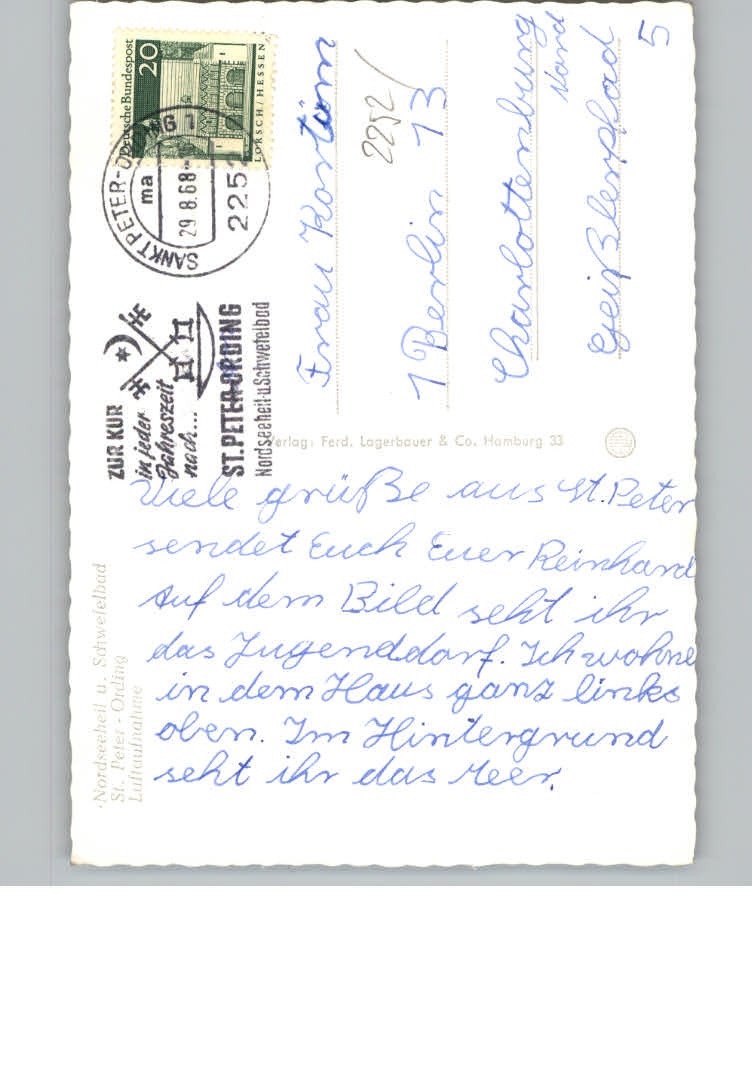 Deutsche Bundespost
20
LORSCH / HESSEN
SANKT PETER-O NG 1
ma
29.8.68-
2252
ZUR KUR
in jeder
Jahreszeit
nach...
ST. PETER-ORDING
Nordseeheil-u.Schwefelbad
Frau
2252/
1 Berlin 13
Charlottenburg
Nord
Geißlerpfad
5
Verlag: Ferd. Lagerbauer & Co. Hamburg 33
Nordseeheil u. Schwefelbad
St. Peter-Ording
Luftaufnahme
Viele grüße aus St. Peter
sendet Euch Euer Reinhard
Auf dem Bild seht ihr
das Jugenddorf. Ich wohne
in dem Haus ganz links
oben. Im Hintergrund
seht ihr das Meer.